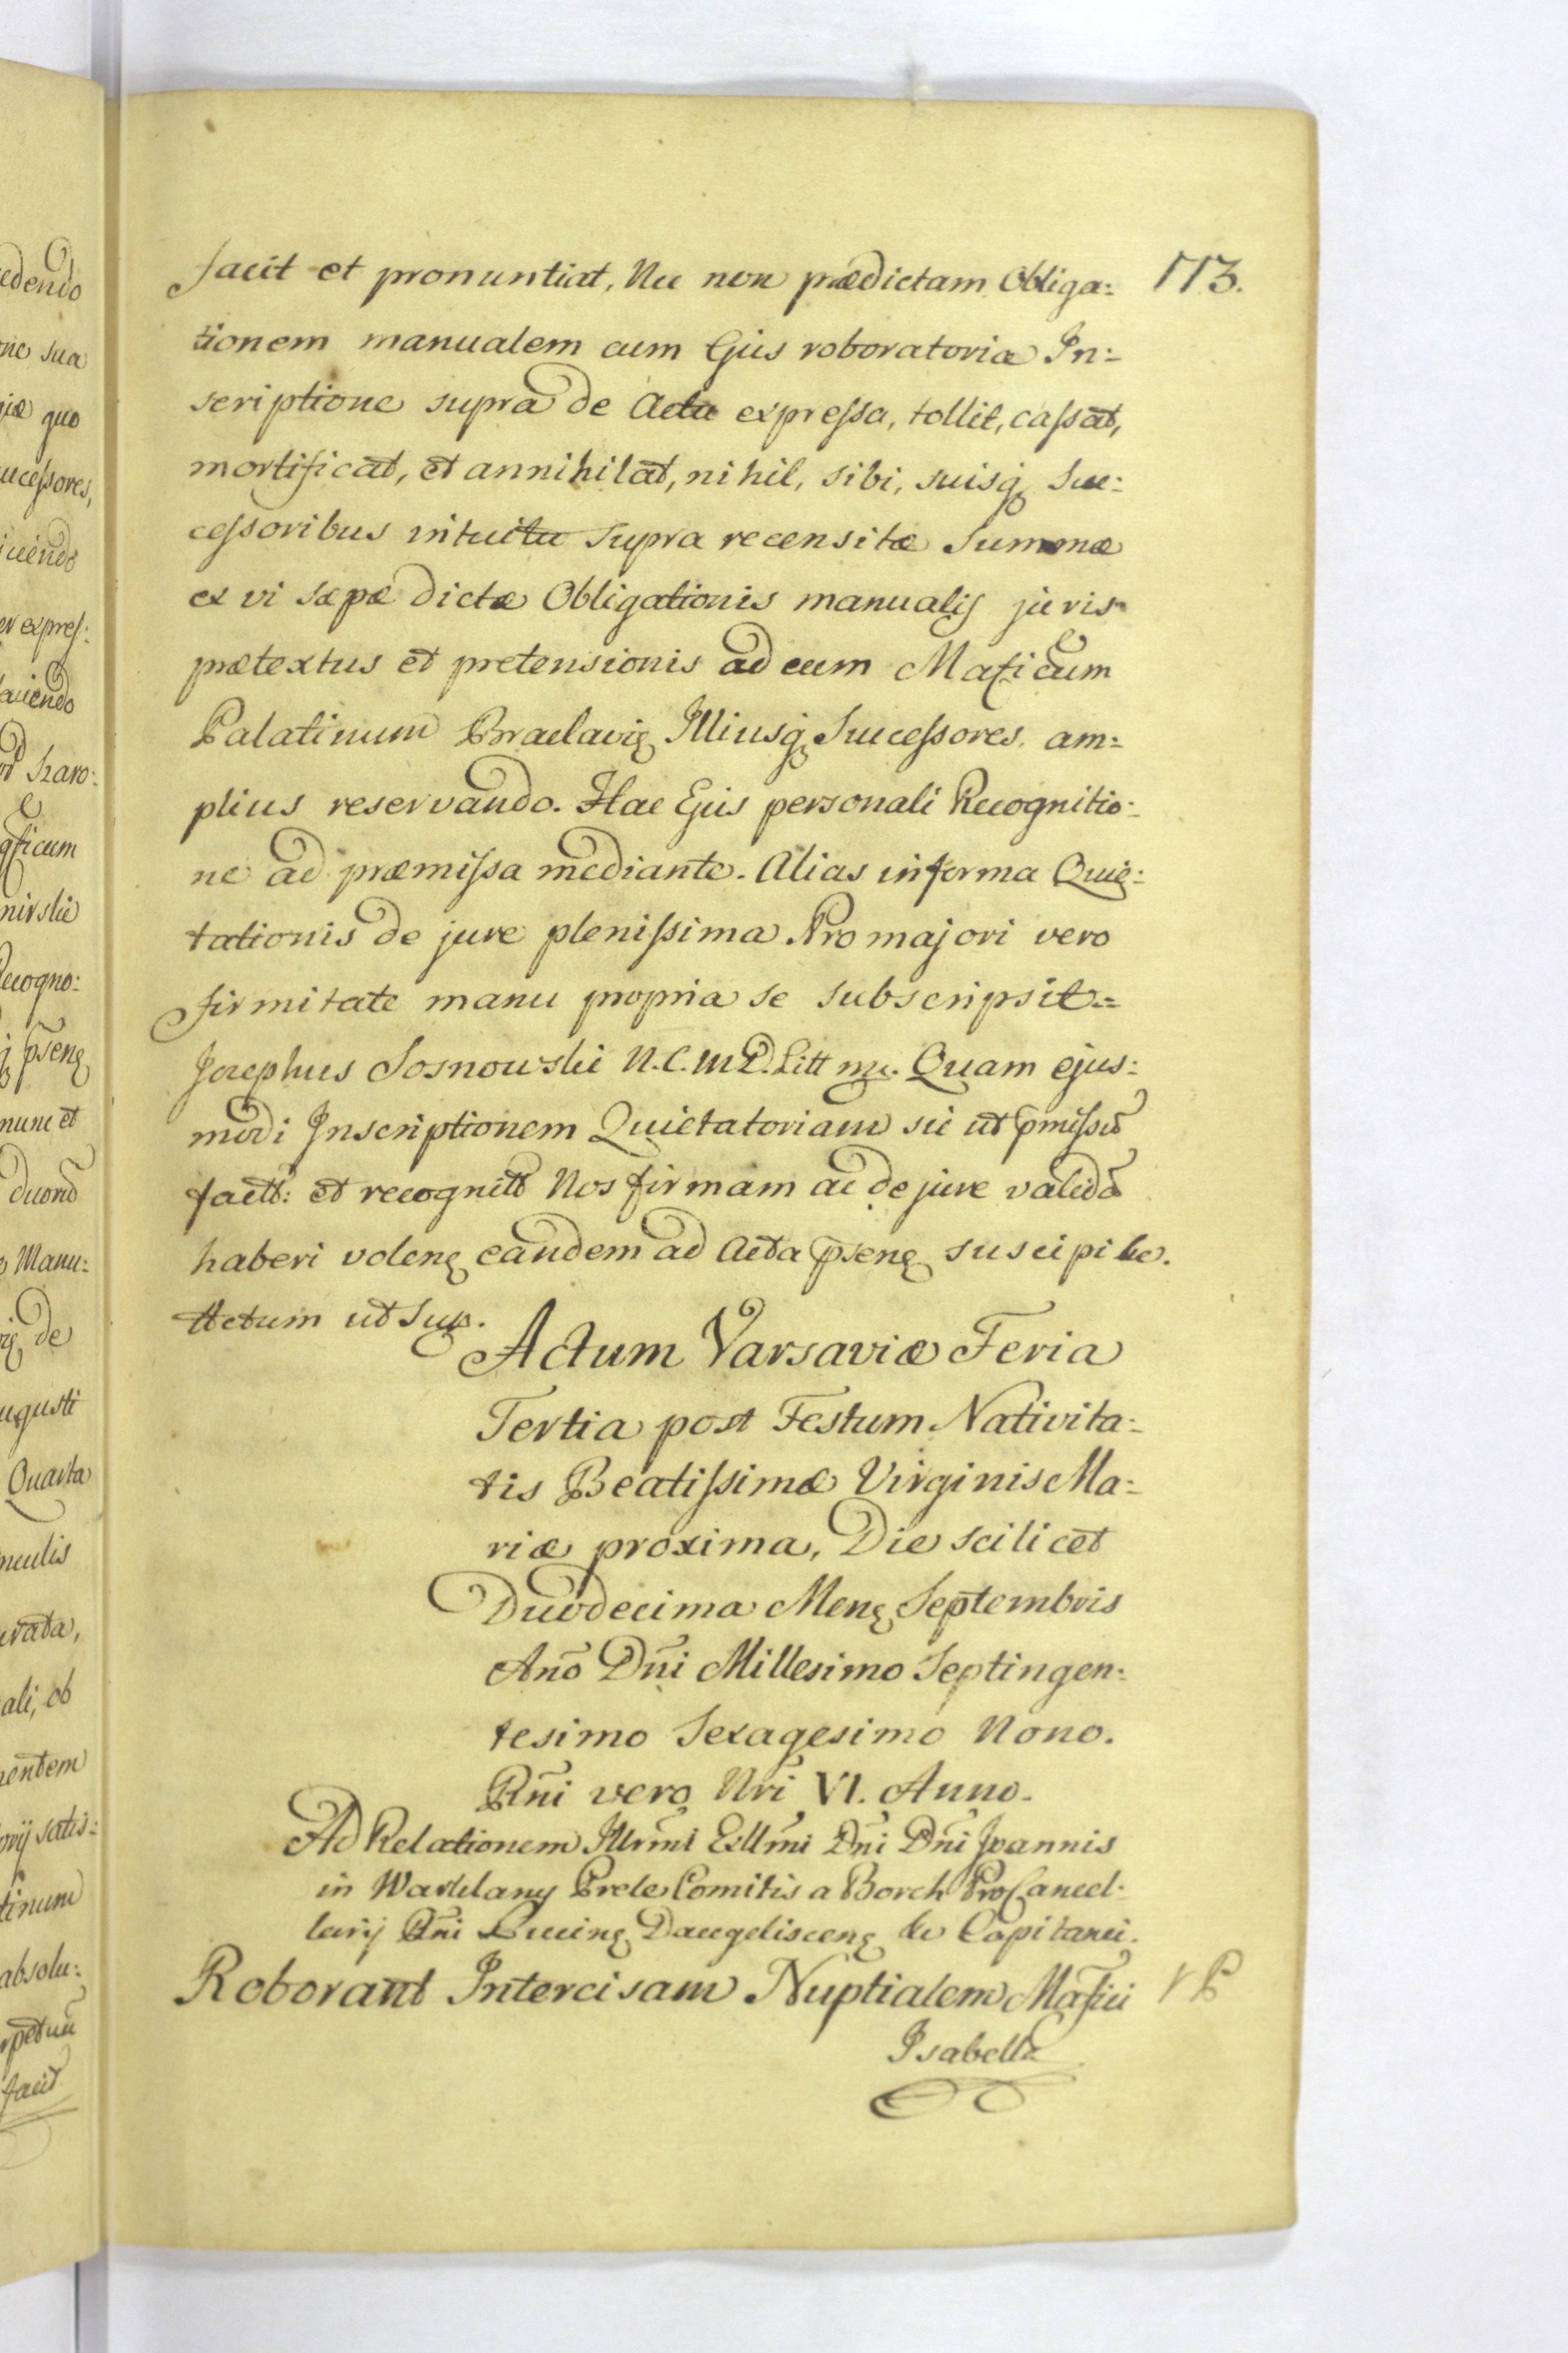 facit et pronuntiat, Nec non prædictam Obliga:
113.
tionem manualem cum Ejus roboratoria In:
scriptione supra de Actu expreſsa, tollit, caſsat,
mortificat, et annihilat, nihil, sibi, suisq Suc:
ceſsoribus intuitu supra recensitæ Summæ
ex vi sæpæ dictæ Obligationis manualis juris
prætextus et pretensionis ad eum Mağficum
Palatinum Braclavię Illiusq Succeſsores am:
plius reservando. Hac Ejus personali Recognitio:
ne ad præmiſsa mediante. Alias in forma Quie:
tationis de jure pleniſsima Pro majori vero
firmitate manu propria se subscripsit.=
Josephus Sosnowski N.C.M.D. Litt mp. Quam ejus:
modi Inscriptionem Quietatoriam sic ut p̃miſsũ
factã: et recognitã Nos firmam ac de jure validã
haberi volenę eandem ad Acta p̃senę suscipi &c.
Actum ut Sup.
Actum Varsaviæ Feria
Tertia post Festum Nativita:
tis Beatiſsimæ Virginis Ma:
riæ proxima, Die scilicet
Duodecima Menę Septembris
Anõ Dñi Millesimo Septingen:
tesimo Sexagesimo Nono.
Rñi vero Nrĩ VI. Anno.
Ad Relationem Illrm̃i Exllm̃i Dñi Dñi Joannis
in Warklany Prele Comitis a Borch ProCancel:
larij Rñi Lucinę Daugelisceną &c Capitanei.
Roborant Intercisam Nuptialem Mağfici
Isabella